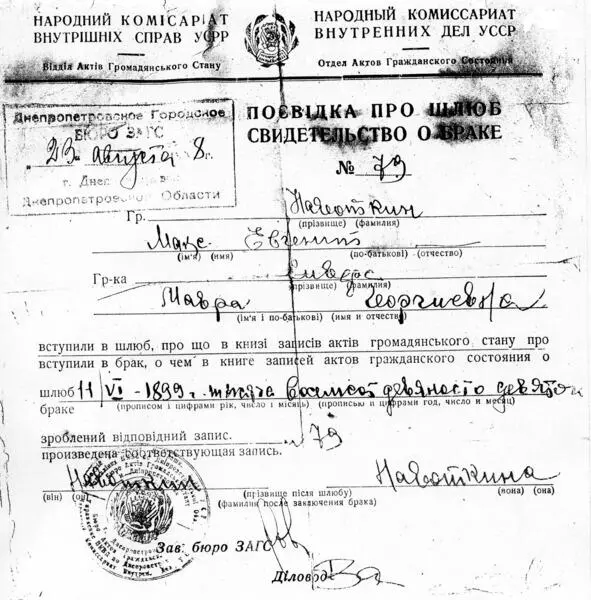 НАРОДНИЙ КОМІСАРІАТ
ВНУТРІШНІХ СПРАВ УСРР
Відділ Актів Громадянського Стану
НАРОДНЫЙ КОМИССАРИАТ
ВНУТРЕННИХ ДЕЛ УССР
Отдел Актов Гражданского Состояния
Днепропетровское Городское
БЮРО ЗАГС
„23" августа 8г.
г. Днеп
Днепропетровской Области
ПОСВІДКА ПРО ШЛЮБ
СВИДЕТЕЛЬСТВО О БРАКЕ
№ 79
Гр.
(прізвище) (фамилия)
Макс Евгений
(ім'я) (имя) (по-батькові) (отчество)
Гр-ка
(прізвище) (фамилия)
Мавра Георгиевна
(ім'я і по-батькові) (имя и отчество)
вступили в шлюб, про що в книзі записів актів громадянського стану про
вступили в брак, о чем в книге записей актов гражданского состояния о
шлюб 11/VI - 1899 г. тысяча восемьсот девяносто девятого
браке (прописом і цифрами рік, число і місяць) (прописью и цифрами год, число и месяц)
зроблений відповідний запис. 79
произведена соответствующая запись.
(він) (он) (прізвище після шлюбу) (вона) (она)
(фамилия после заключения брака)
Зав. бюро ЗАГС
Діловод